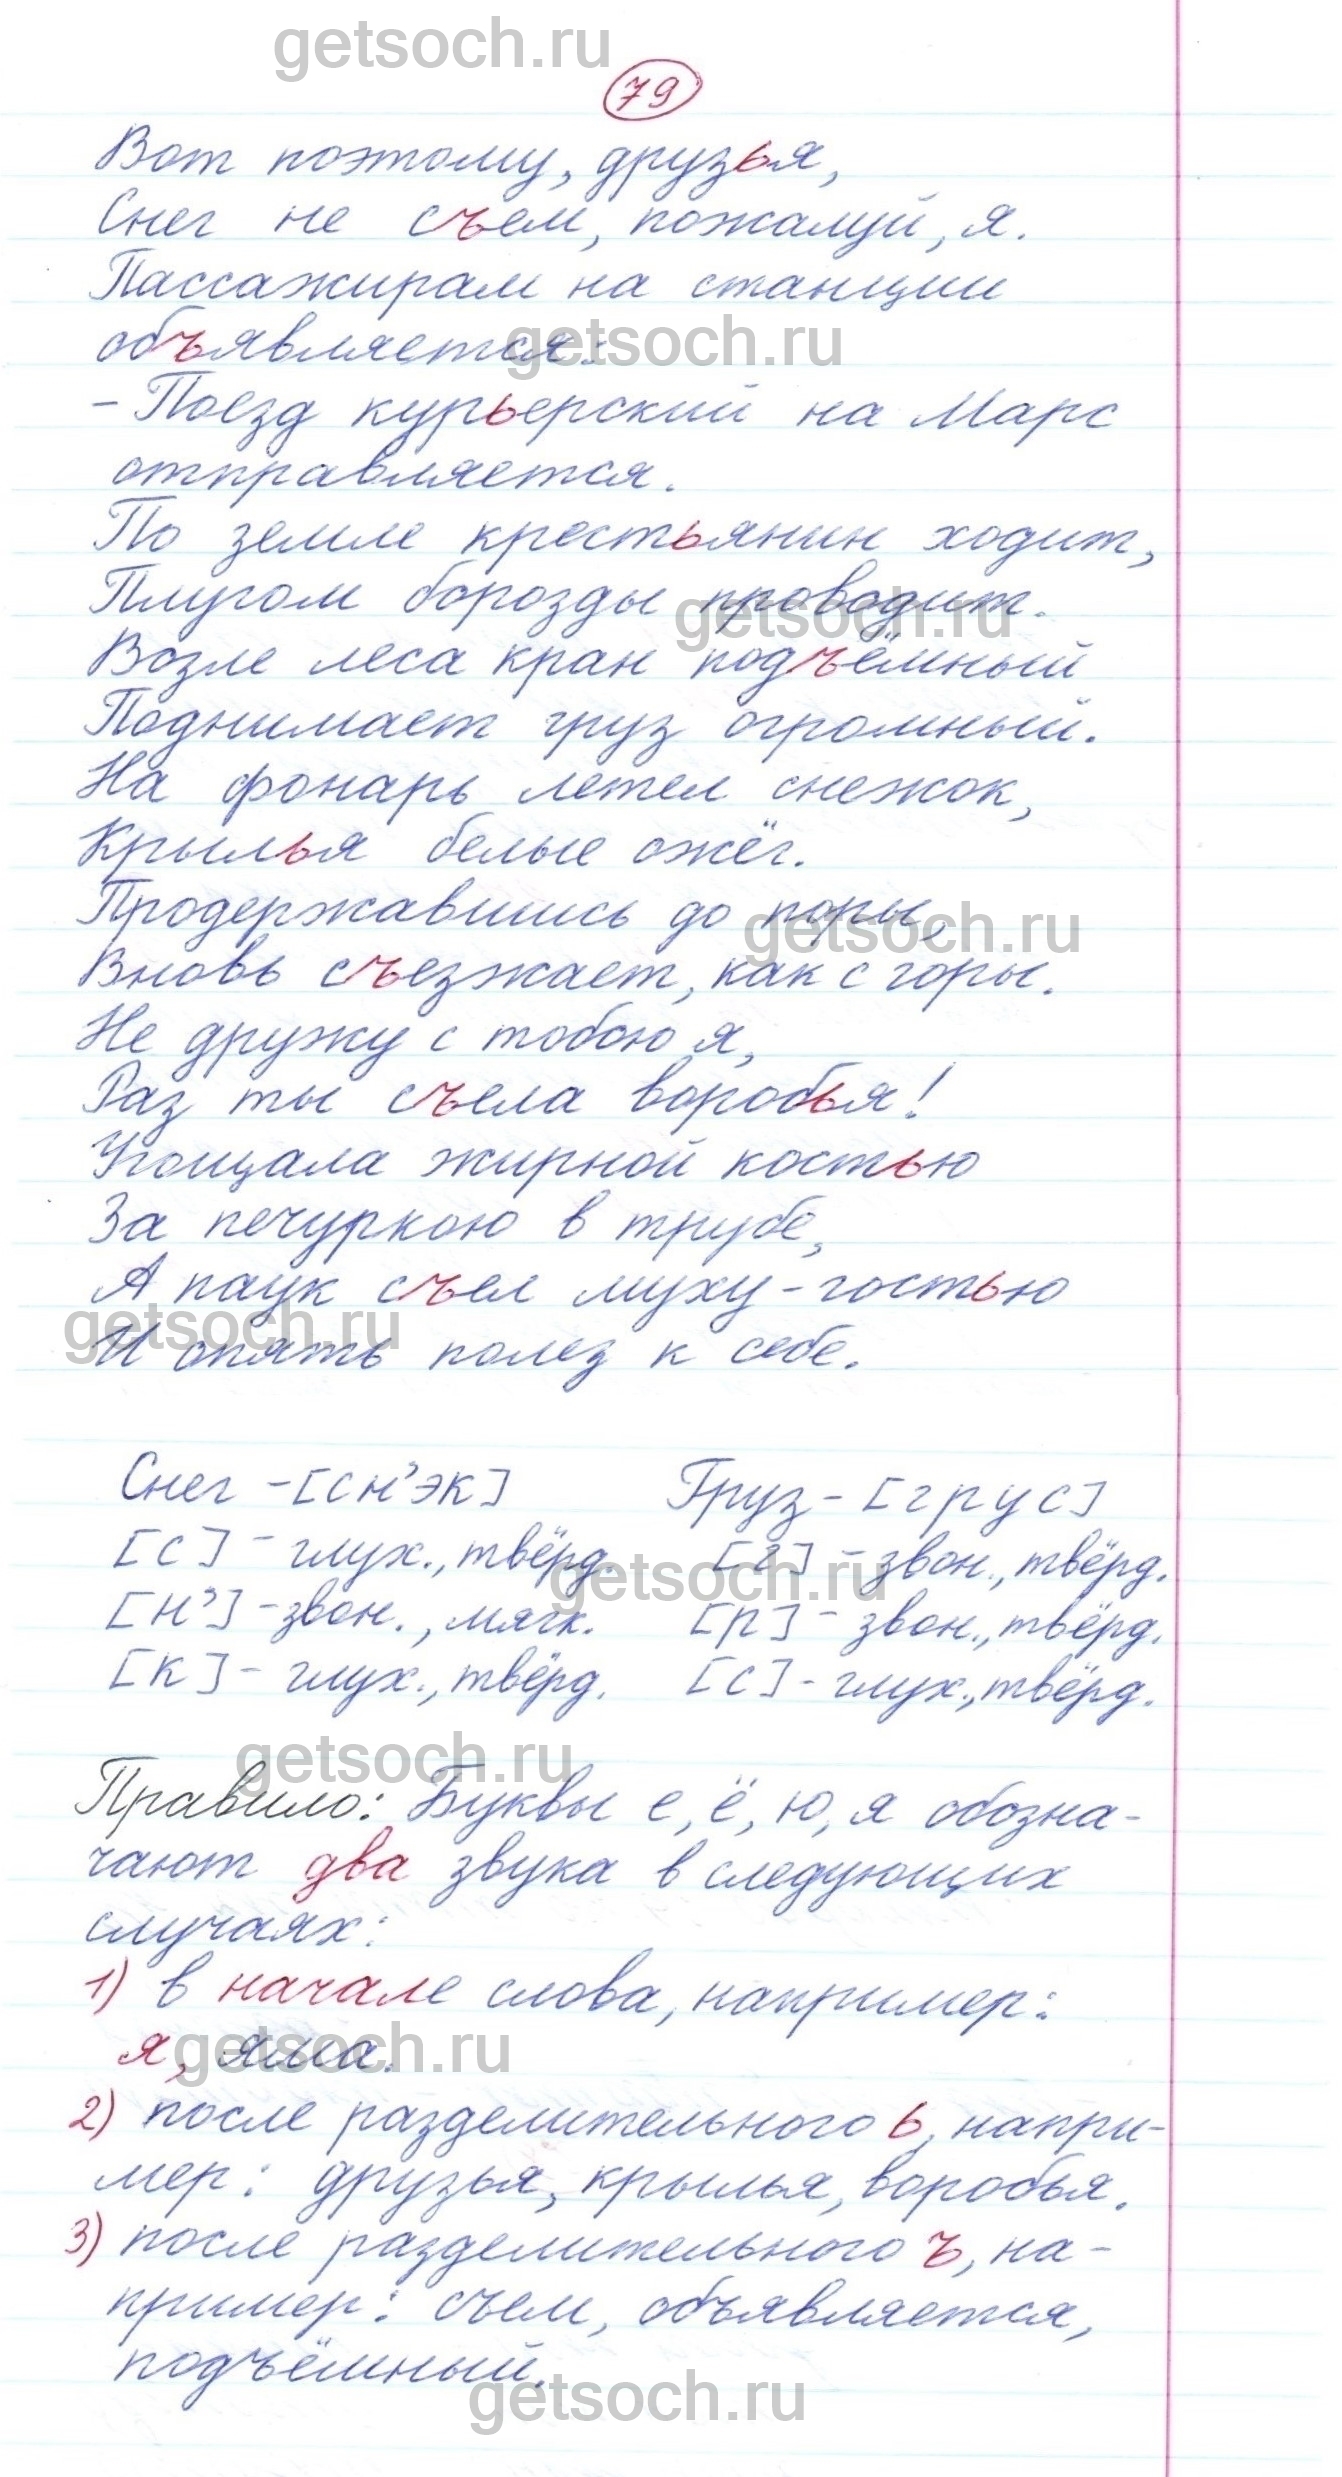 getsoch.ru
79
Вот поэтому, друзья,
Снег не съем, пожалуй, я.
Пассажирам на станции
объявляется:
getsoch.ru
- Поезд курьерский на Марс
отправляется.
По земле крестьянин ходит,
Плугом борозды проводит.
getsoch.ru
Возле леса кран подъёмный
Поднимает груз огромный.
На фонарь летел снежок,
Крылья белые ожёг.
Продержавшись до поры,
getsoch.ru
Вновь съезжает, как с горы.
Не дружу с тобою я,
Раз ты съела воробья!
Угощала жирной костью
За печуркою в трубе,
А паук съел муху-гостью
getsoch.ru
И опять полез к себе.
Снег - [сн'эк] Груз - [грус]
[с] - глух., твёрд. [г] - звон., твёрд.
getsoch.ru
[н'] - звон., мягк. [р] - звон., твёрд.
[к] - глух., твёрд. [с] - глух., твёрд.
getsoch.ru
Правило: Буквы е, ё, ю, я обозна-
чают два звука в следующих
случаях:
1) в начале слова, например:
я, яма.
getsoch.ru
2) после разделительного ь, напри-
мер: друзья, крылья, воробья.
3) после разделительного ъ, на-
пример: съем, объявляется,
подъёмный.
getsoch.ru